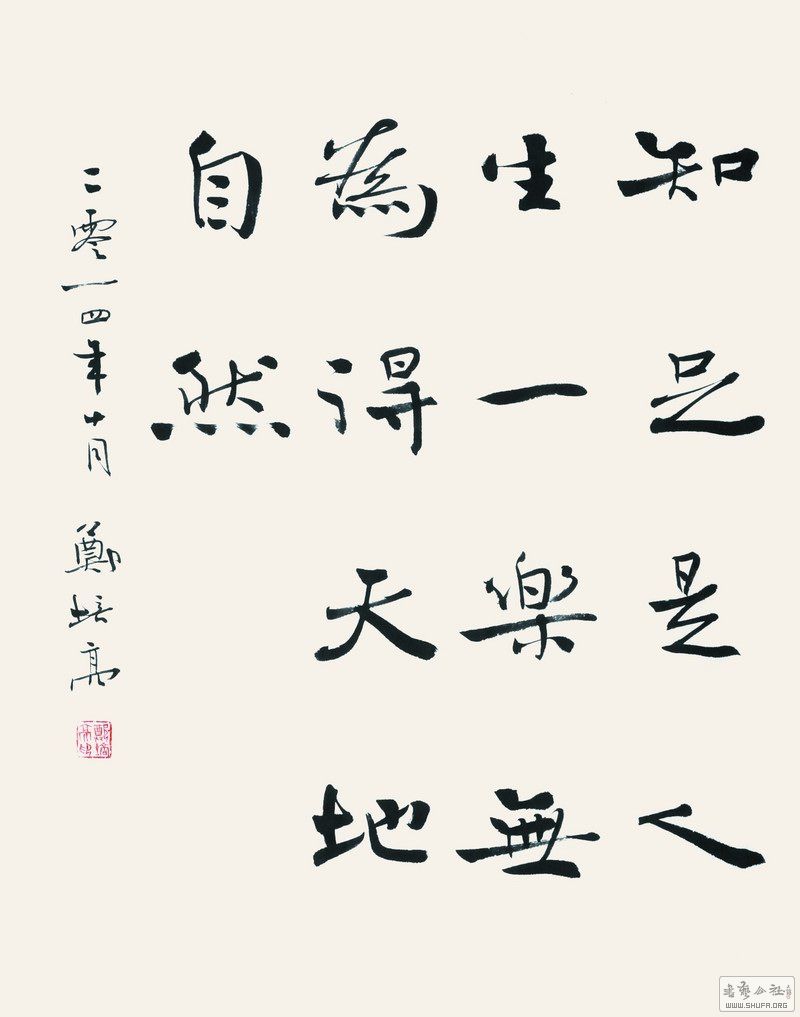 知足是人
生一樂無
為得天地
自然
二零一四年十月 鄭培亮
WWW.SHUFA.ORG